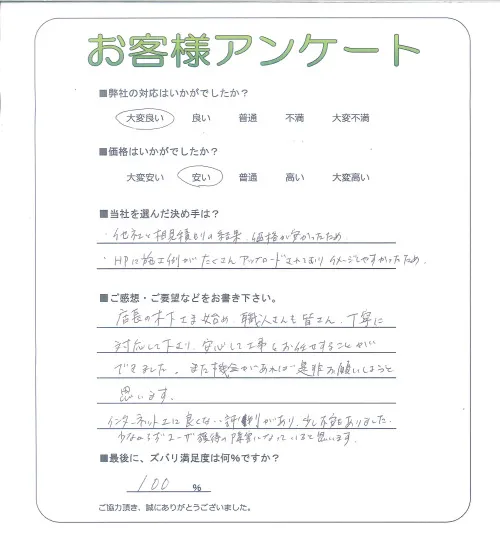 お客様アンケート
■弊社の対応はいかがでしたか?
大変良い 良い 普通 不満 大変不満
■価格はいかがでしたか?
大変安い 安い 普通 高い 大変高い
■当社を選んだ決め手は?
・他社と相見積もりの結果、価格が安かったため
・HPに施工例がたくさんアップロードされており イメージしやすかったため.
■ご感想・ご要望などをお書き下さい。
店長の木下さま始め、職人さんも皆さん、丁寧に
対応して下さり、安心して工事をお任せすることが
できました。また機会があれば是非お願いしようと
思います。
インターネット上に良くない評判があり、少し不安もありました.
少なからずユーザ獲得の障害になっていると思います.
■最後に、ズバリ満足度は何%ですか?
100 %
ご協力頂き、誠にありがとうございました。